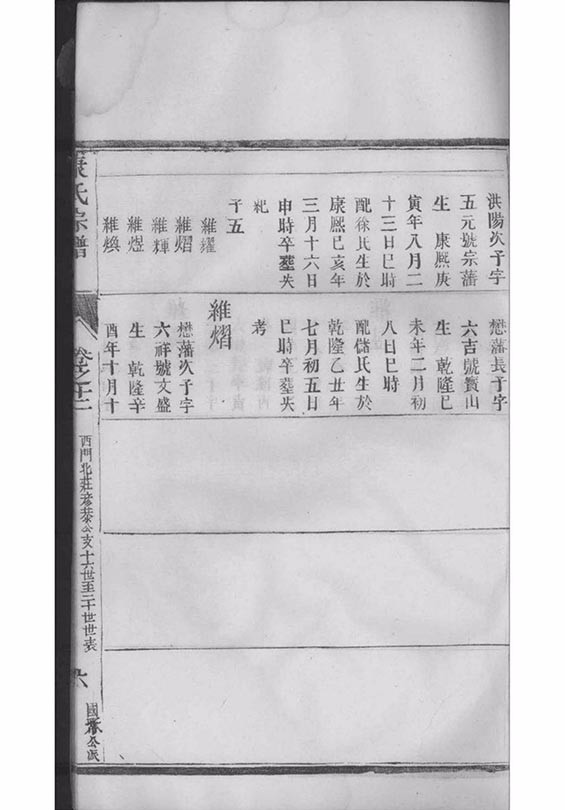 洪陽次子字
五元號宗藩
生 康熈庚
寅年八月二
十三日巳時
配徐氏生於
康熈己亥年
三月十六日
申時卒塟失
祀
子五
維糴
維熠
維輝
維煜
維煥
懋藩長子字
六吉號寳山
生 乾隆己
未年二月初
八日巳時
配儲氏生於
乾隆乙丗年
七月初五日
巳時卒塟失
考
維熠
懋藩次子字
六祥號文盛
生 乾隆辛
酉年十月十
氏宗譜
卷之
西門北莊彥泰公支十六世至二十世世表
國公派